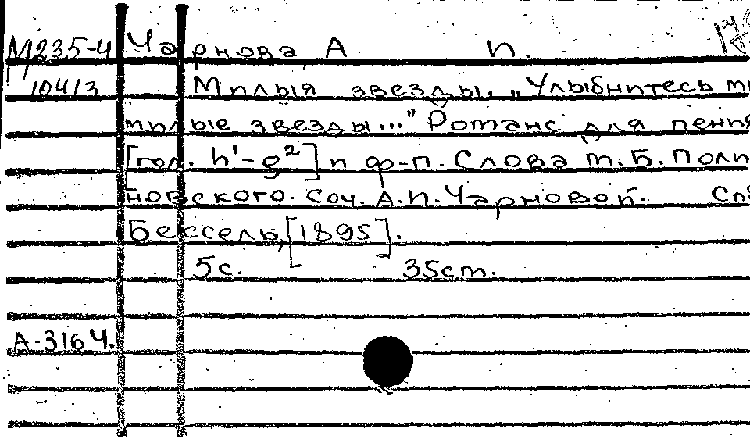 М235-4 Чарнова А П.
10413 Милыя звезды. „Улыбнитесь м
милые звезды..." Романс для пения
[гол. h'-g²] и ф-п. Слова М.Б. Поли
новского. Соч. А.П. Чарновой. Спб
Бессель, [1895].
5с. 35см.
А-316 Ч.